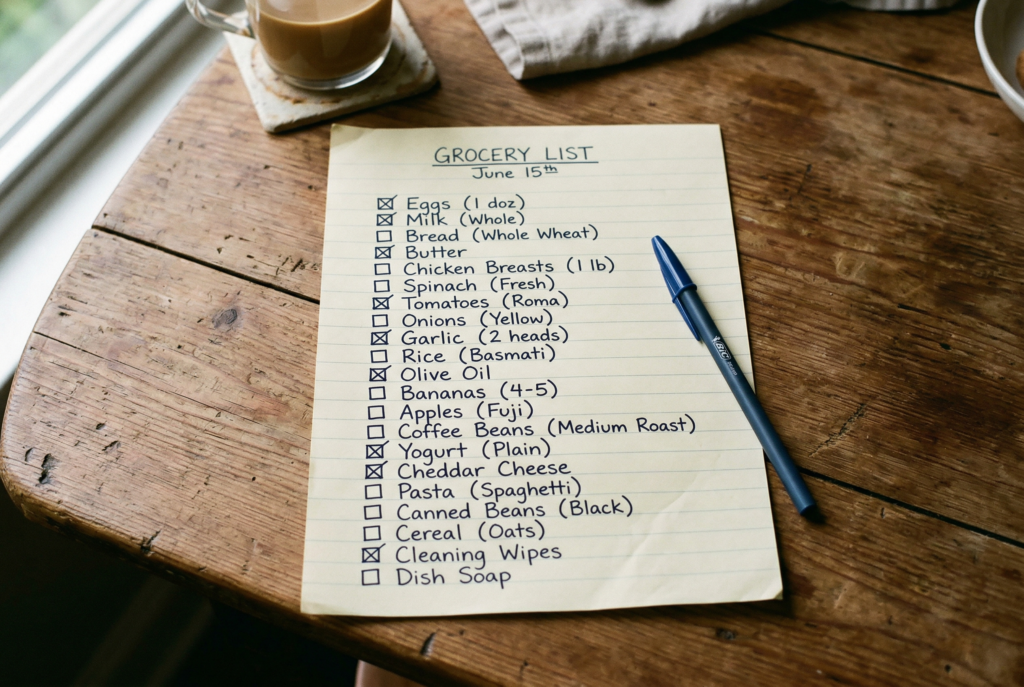 GROCERY LIST
June 15th
☒ Eggs (1 doz)
☒ Milk (Whole)
☐ Bread (Whole Wheat)
☒ Butter
☐ Chicken Breasts (1 lb)
☐ Spinach (Fresh)
☒ Tomatoes (Roma)
☐ Onions (Yellow)
☒ Garlic (2 heads)
☐ Rice (Basmati)
☒ Olive Oil
☐ Bananas (4-5)
☐ Apples (Fuji)
☐ Coffee Beans (Medium Roast)
☒ Yogurt (Plain)
☒ Cheddar Cheese
☐ Pasta (Spaghetti)
☐ Canned Beans (Black)
☐ Cereal (Oats)
☒ Cleaning Wipes
☐ Dish Soap
BIC